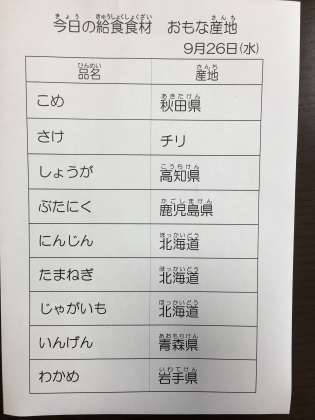 今日の給食食材 おもな産地
9月26日(水)
品名 産地
こめ 秋田県
さけ チリ
しょうが 高知県
ぶたにく 鹿児島県
にんじん 北海道
たまねぎ 北海道
じゃがいも 北海道
いんげん 青森県
わかめ 岩手県